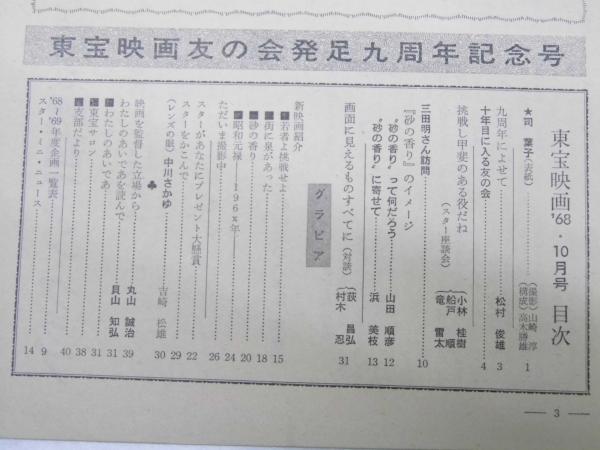 東宝映画友の会発足九周年記念号
東宝映画'68・10月号 目次
★司 葉子(表紙)……(撮影)山崎 淳 (構成)高木勝雄 1
九周年によせて……松村 俊雄 3
十年目に入る友の会……4
挑戦し甲斐のある役だね(スター座談会) 小林 桂樹 船戸 順 竜 雷太
三田明さん訪問……10
『砂の香り』のイメージ
“砂の香り”って何だろう……山田 順彦 12
“砂の香り”に寄せて……浜 美枝 13
画面に見えるものすべてに(対談) 荻 昌弘 村木 忍 31
グラビア
新映画紹介
■若者よ挑戦せよ……15
■街に泉があった……18
■砂の香り……20
■昭和元禄……196x年……24
ただいま撮影中……26
スターがあなたにプレゼント大懸賞……22
スターをかこんで……29
(レンズの眼)中川さかゆ……吉崎 松雄 30
♣
映画を監督した立場から……丸山 誠治 39
わたしのあいであを読んで……貝山 知弘 31
■わたしのあいであ……31
■東宝サロン……38
■支部だより……40
'68〜'69年度企画一覧表……9
スター・ミニ・ニュース……14
— 3 —